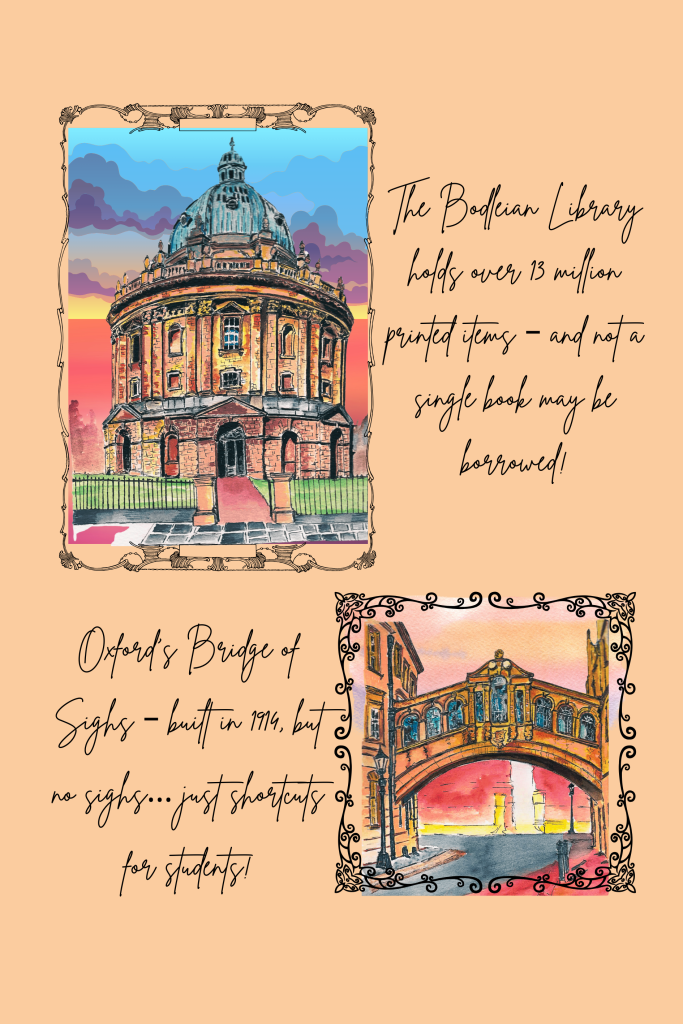 The Bodleian Library
holds over 13 million
printed items – and not a
single book may be
borrowed!
Oxford's Bridge of
Sighs – built in 1914, but
no sighs... just shortcuts
for students!